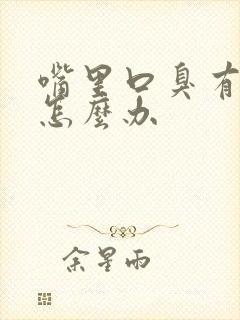 嘴里口臭有
怎麼办
余星雨